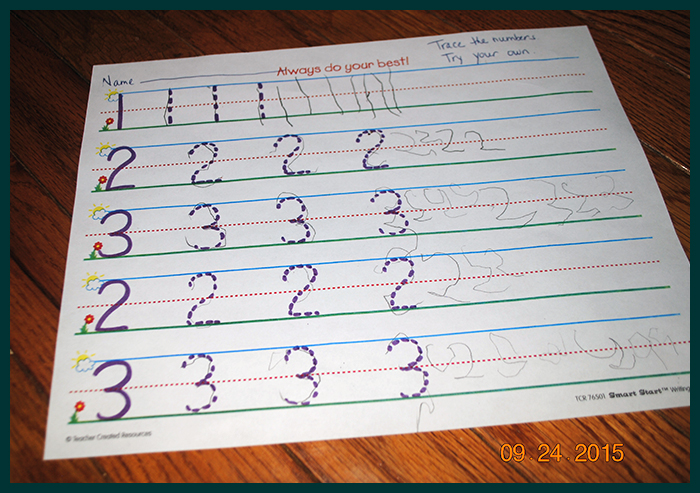 Trace the numbers.
Try your own.
Name
Always do your best!
1 1 1 1
2 2 2 2 2 2 2 2
3 3 3 3
2 2 2 2
3 3 3 3
TCR 76501 Smart Start™ Writing
© Teacher Created Resources
09.24.2015